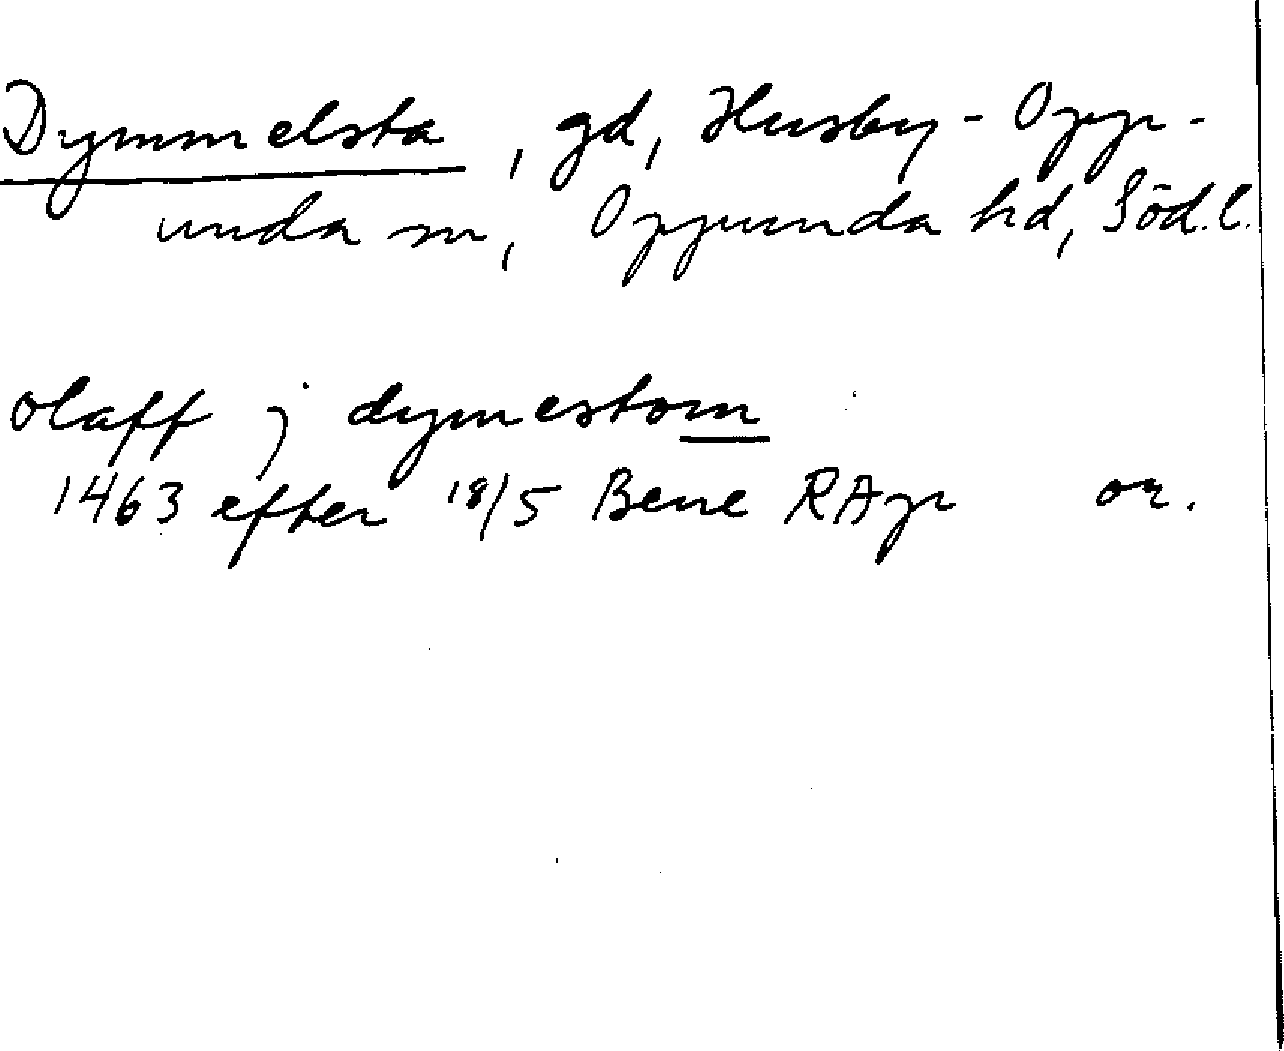 Dymmelsta, gd, Husby-Opp-
unda sn, Oppunda hd, Söd.l.
olaff j dymestom
1463 efter 18/5 Bene RAp or.